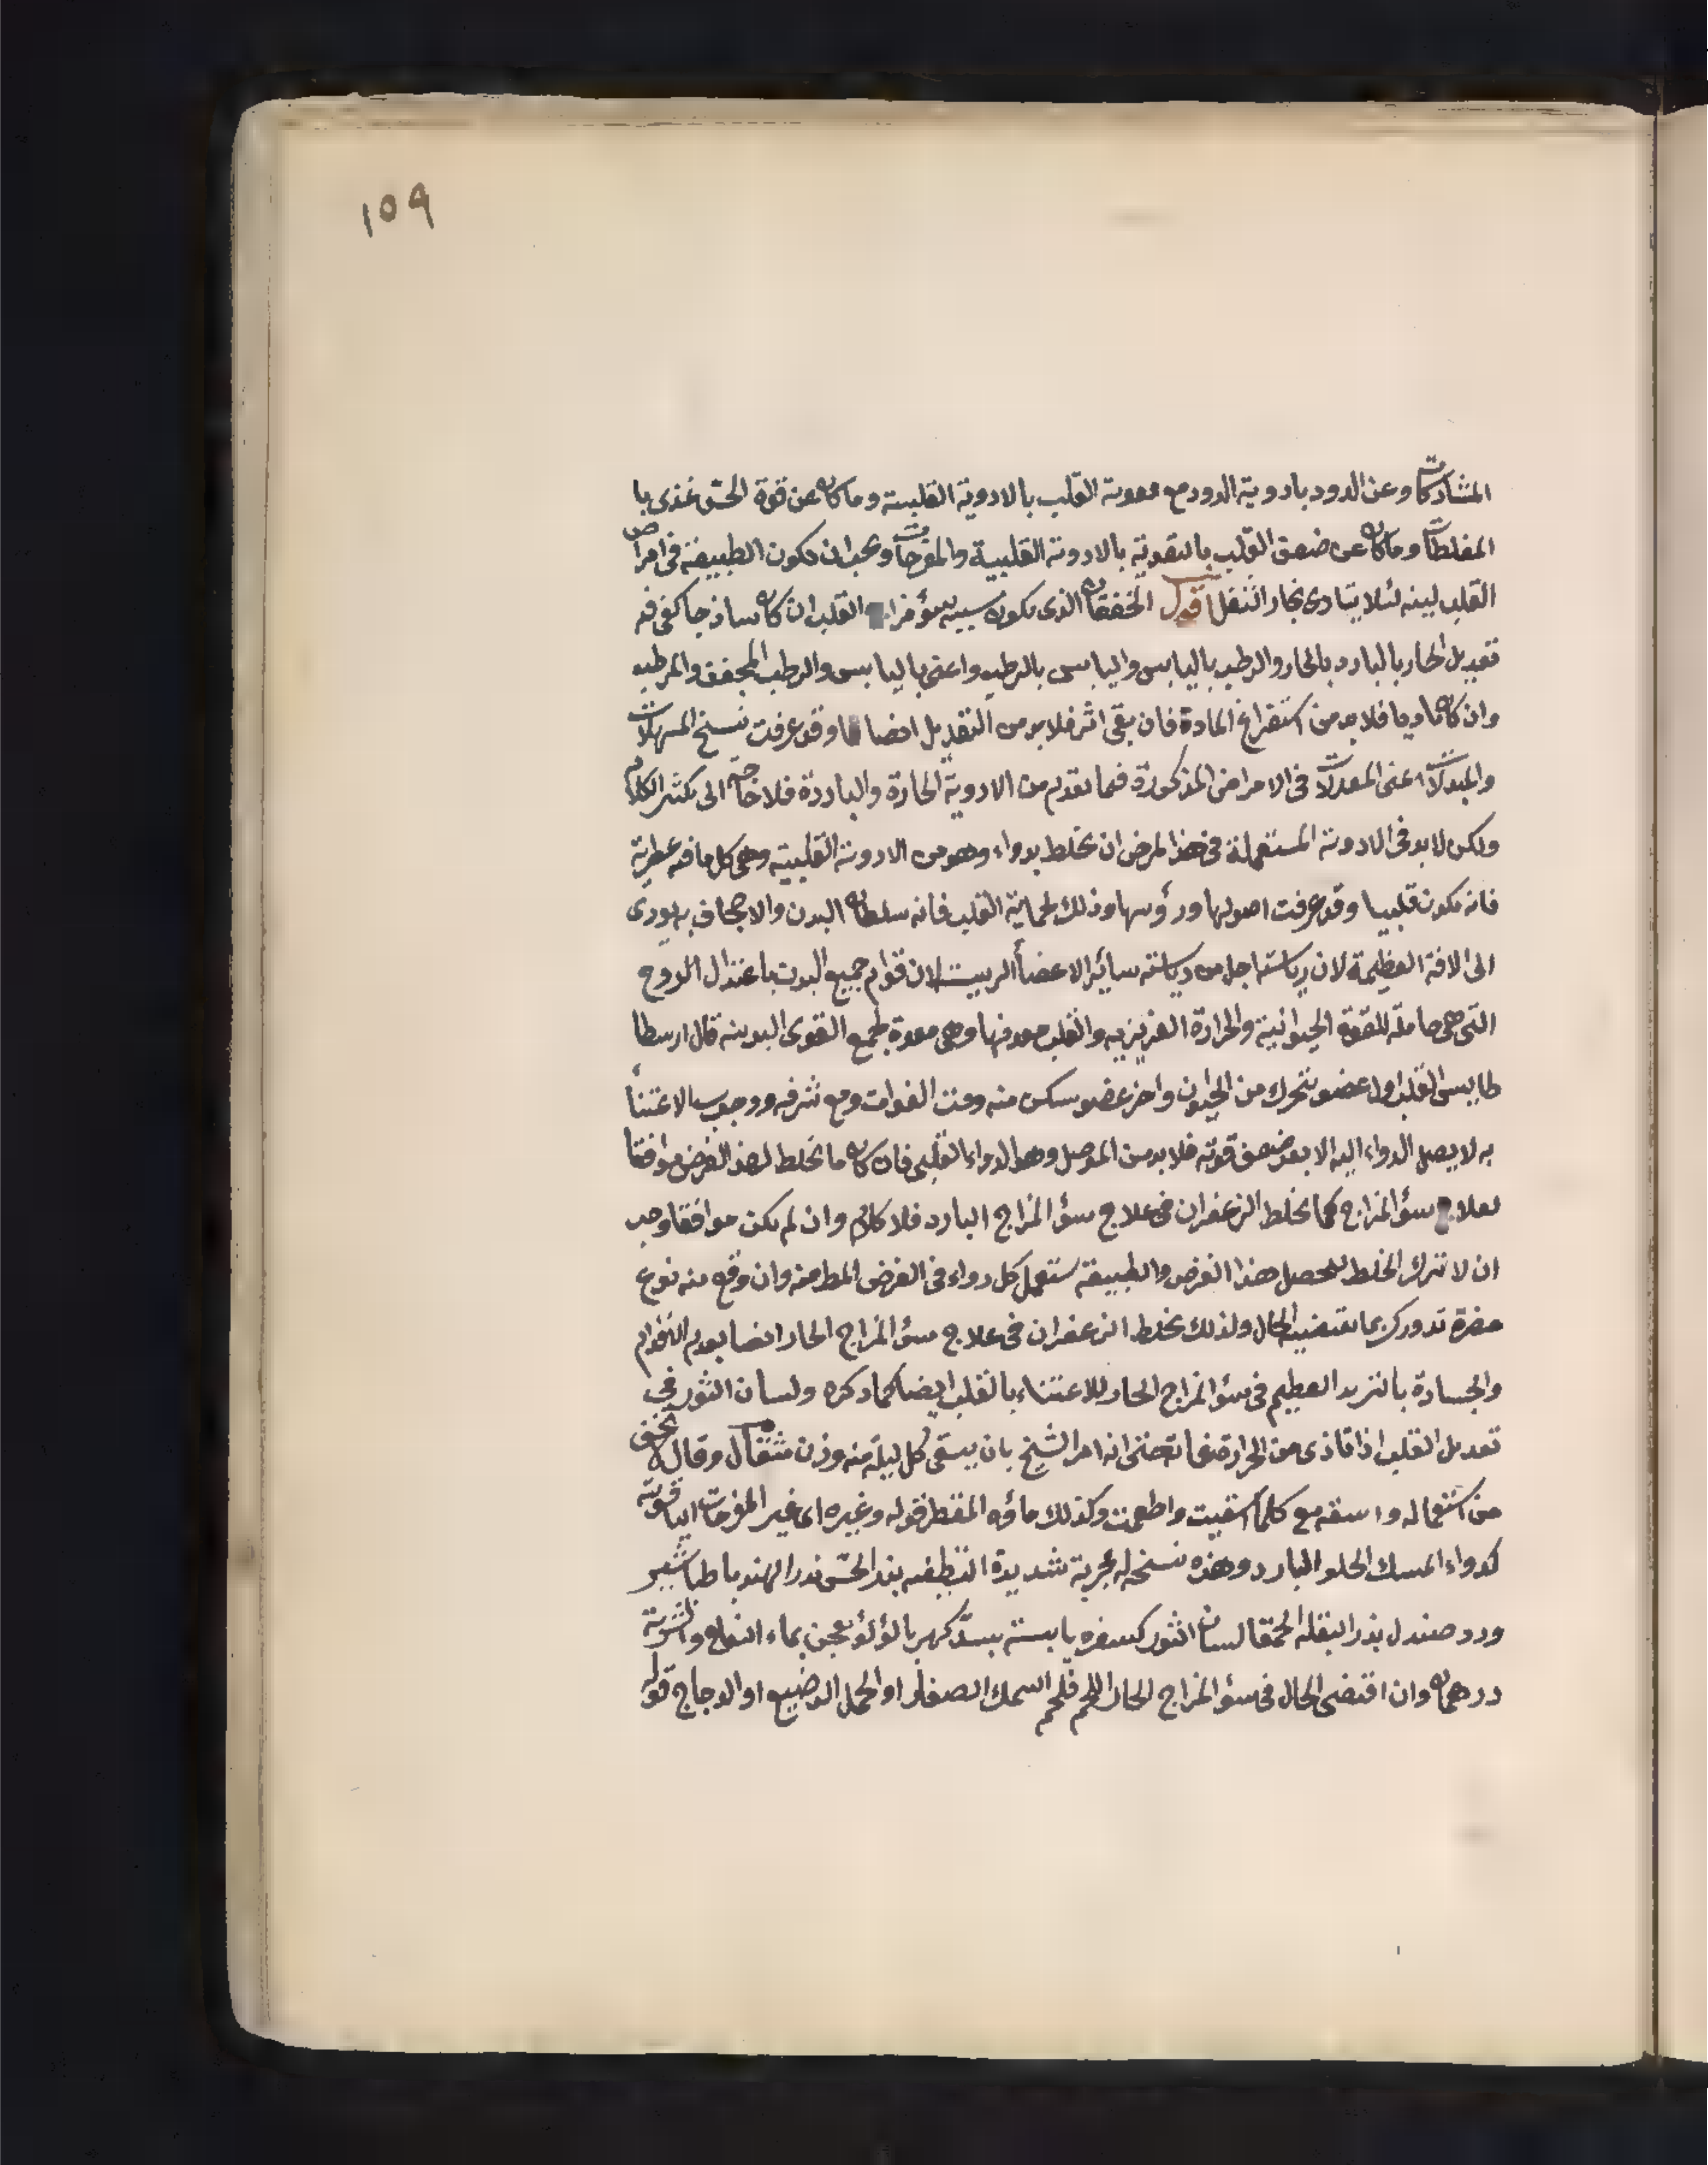 ١٥٩
المشاركات وعن الدود بادوية الدود مع معونة القلب بالادوية القلبية وما كان عن قوة الحس غذى با
المغلظات وما كان عن ضعف القلب بالتقوية بالادوية القلبية والمفرحات ويجب ان تكون الطبيعة فى امراض
القلب لينة لئلا يتادى بخار الثفل اقول الخفقان الذى يكون سببه سؤ مزاج القلب ان كان ساذجا كفى فيه
تعديل الحار بالبارد بالحار والرطب باليابس واليابس بالرطب واعنى باليابس والرطب المجفف والمرطب
وان كان ماديا فلا بد من استفراغ المادة فان بقى اثر فلا بد من التعديل ايضا وقد عرفت نسخ المسهلات
والمبدلات اعنى المعدلات فى الامراض المذكورة فيما تقدم من الادوية الحارة والباردة فلا حاجة الى تكثير الكلام
ولكن لا بد فى الادوية المستعملة فى هذا المرض ان يخلط بدواء وهو من الادوية القلبية وهى كل ما فيه عطرية
فانه يكون قلبيا وقد عرفت اصولها ورؤسها وذلك لحماية القلب فانه سلطان البدن والاجحاف به يودى
الى الافة العظيمة لان رياسته اجل من رياسة سائر الاعضأ الرييسة لان قوام جميع البدن باعتدال الروح
التى هى حاملة للقوة الحيوانية والحرارة الغريزيه والقلب معدنها وهى معدة لجميع القوى البدنية قال ارسطا
طاليس القلب اول عضو يتحرك من الحيوان واخر عضو يسكن منه وقت الفوات ومع شرفه ووجوب الاعتنأ
به لا يصل الدواء اليه الا بعد ضعف قوته فلا بد من الموصل وهو الدواء القلبى فان كان ما يخلط لهذا الغرض موافقا
لعلاج سؤ المزاج كما يخلط الزعفران فى علاج سؤ المزاج البارد فلا كلام وان لم يكن موافقا وجب
ان لا تترك الخلط ليحصل هذا الغرض والطبيعة تستعمل كل دواء فى الغرض المط منه وان وقع منه نوع
مضرة تدورك بما تقتضيه الحال ولذلك يخلط الزعفران فى علاج سؤ المزاج الحار ايضا بعدم
والجسارة بالتبريد العظيم فى سؤ المزاج الحار للاعتناء بالقلب ايضا كما ذكره ولسان الثور فى
تعديل القلب اذا تاذى من الحرارة انه امر الشيخ بان يسقى كل ليلة منه وزن مثقال وقال لا تخف
من استعماله واسقه مع كلما اسقيت واطعمت وكذلك ماؤه المقطر قوله وغيره اى غير المفرحات الياقوتية
كدواء المسك الحلو البارد وهذه نسخة له مجربة شديدة التطفية بذر الخس بذر الهندبا طباشير
ورد صندل بذر البقلة الحمقا لسان الثور كسفره يابسة بسد كهربا لؤلؤ يعجن بماء التفاح والشربة
درهمان وان اقتضى الحال فى سؤ المزاج الحار اللحم فلحم السمك الصغار او الحمل الرضيع او الدجاج قوله